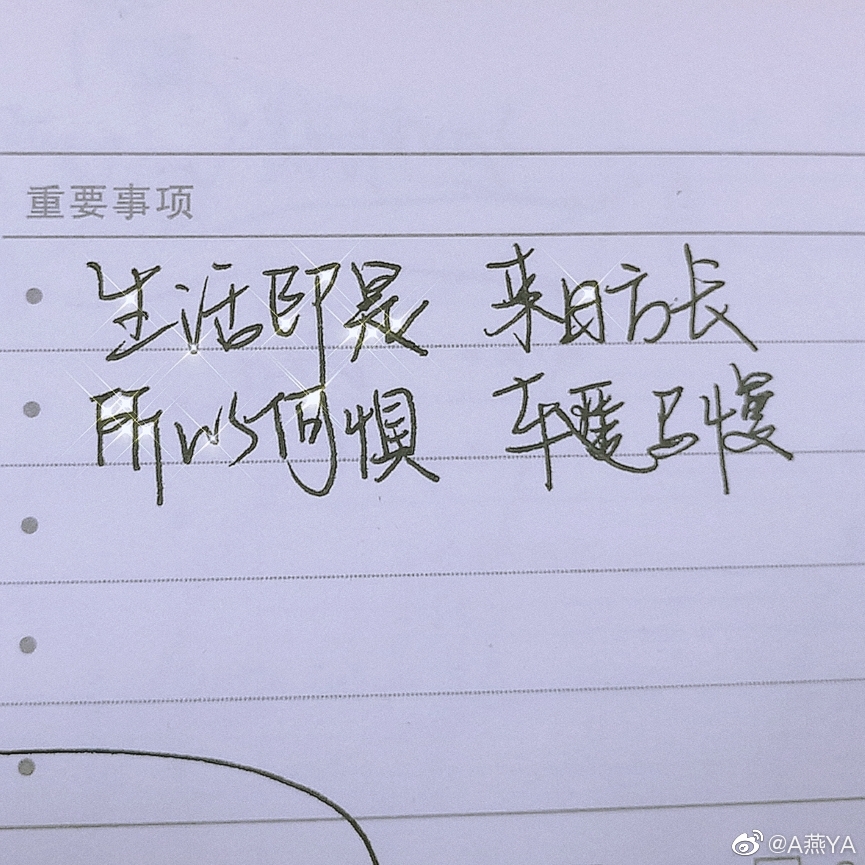 重要事项
生活即是 来日方长
所以何惧 车遥马慢
@A燕YA